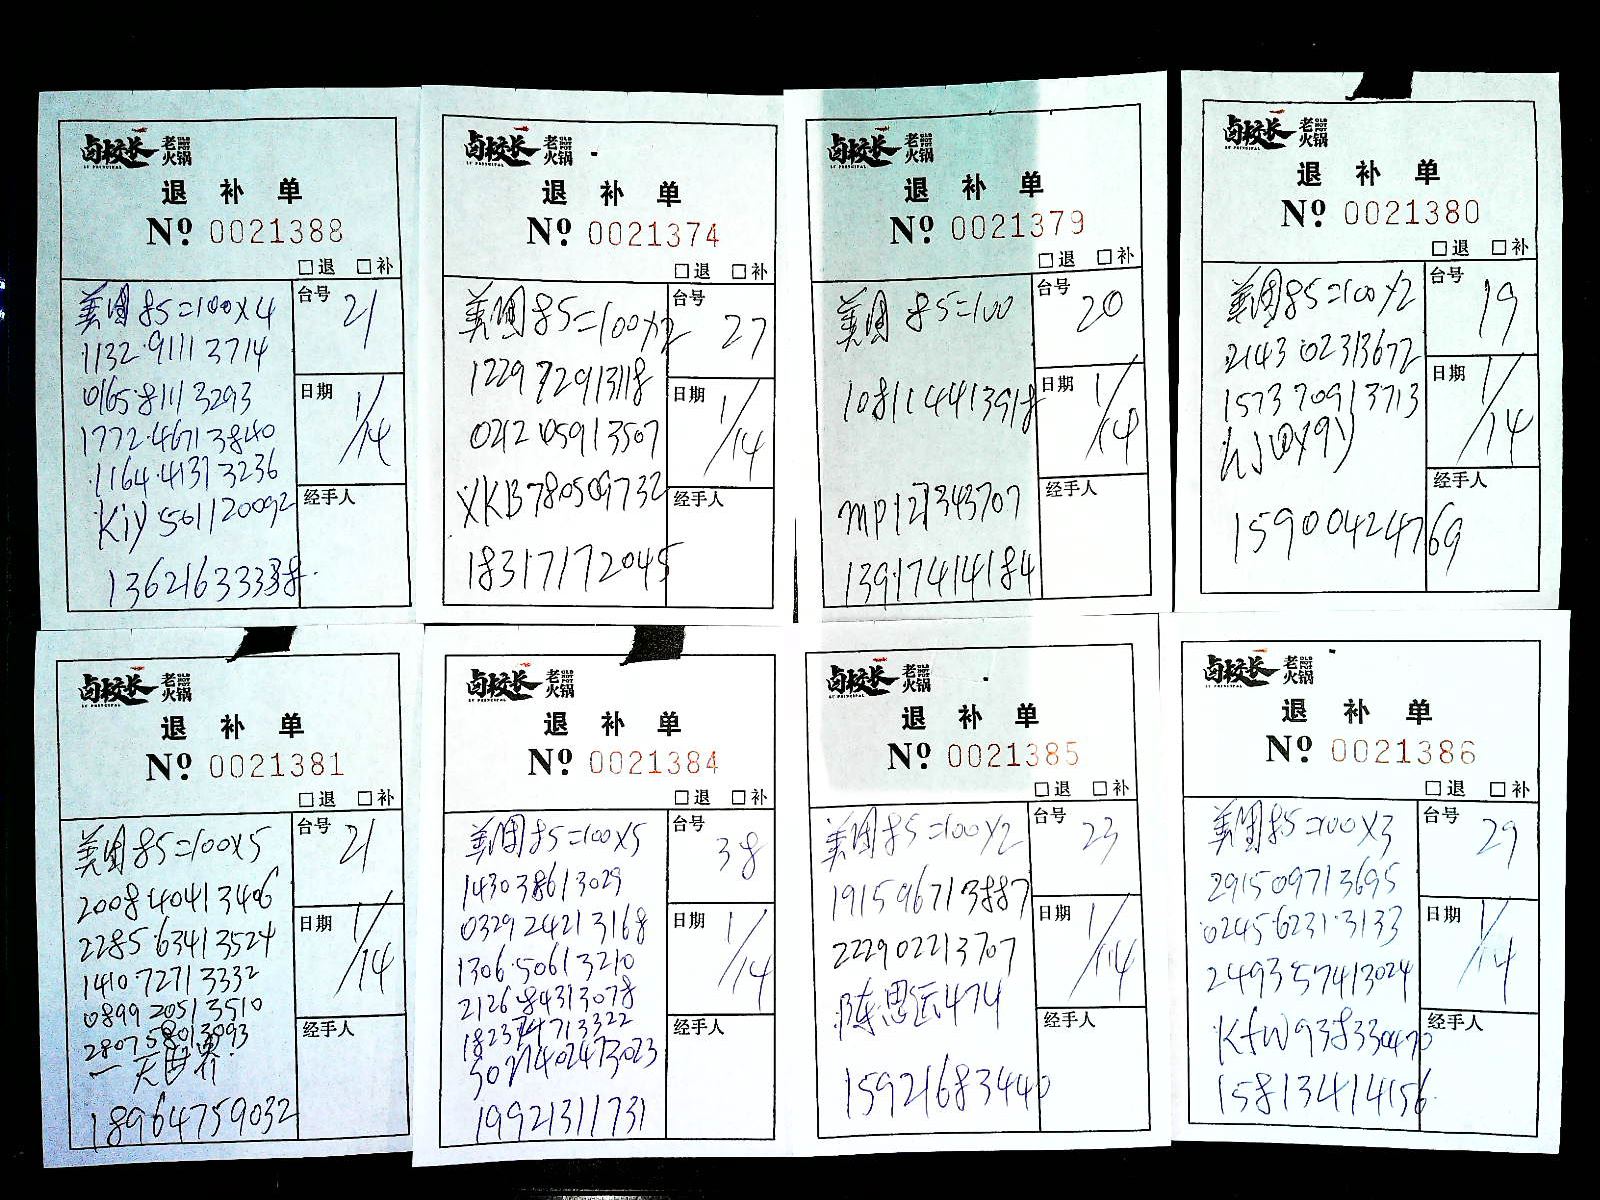 卤校长 老火锅
LU PRINCIPAL
退 补 单
Nº 0021388
□退 □补
美团85=100×4
1132·91113714
0165·81113293
1772·46713840
1164·41313236
kiy561120092
13621633338
台号 21
日期 1/14
经手人
卤校长 老火锅
LU PRINCIPAL
退 补 单
Nº 0021374
□退 □补
美团85=100×2
1229 72913118
0212 05913507
XKB780509732
18317172045
台号 27
日期 1/14
经手人
卤校长 老火锅
LU PRINCIPAL
退 补 单
Nº 0021379
□退 □补
美团 85=100
108114413918
mp121343707
13917414184
台号 20
日期 1/14
经手人
卤校长 老火锅
LU PRINCIPAL
退 补 单
Nº 0021380
□退 □补
美团85=100×2
2143 02313672
1573 70913713
15900424769
台号 19
日期 1/14
经手人
卤校长 老火锅
LU PRINCIPAL
退 补 单
Nº 0021381
□退 □补
美团85=100×5
2008 40413406
2285·63413524
1410 72713332
0899 20513510
2807 58013093
一天世界
18964759032
台号 21
日期 1/14
经手人
卤校长 老火锅
LU PRINCIPAL
退 补 单
Nº 0021384
□退 □补
美团85=100×5
1430 38613029
0329 24213168
1306·50613210
2126·84313078
19921311731
台号 38
日期 1/14
经手人
卤校长 老火锅
LU PRINCIPAL
退 补 单
Nº 0021385
□退 □补
美团85=100×2
1915 96713887
2229 02213707
陈思远474
15921683440
台号 23
日期 1/14
经手人
卤校长 老火锅
LU PRINCIPAL
退 补 单
Nº 0021386
□退 □补
美团85=100×3
2915 09713695
0245·6231·3133
2493 57413024
Kfw938330470
15813414156
台号 29
日期 1/14
经手人